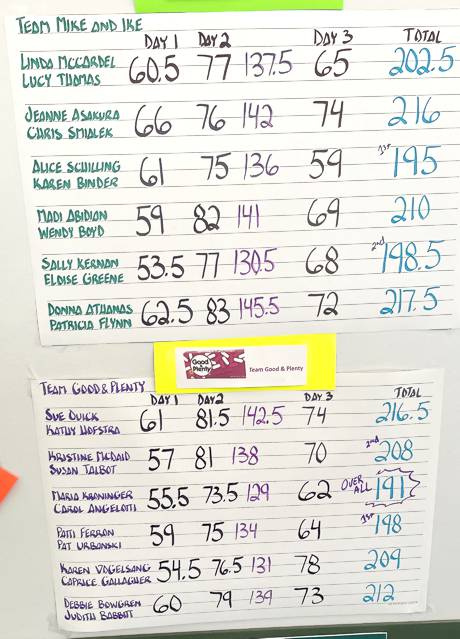 TEAM MIKE AND IKE
DAY 1 DAY 2 DAY 3 TOTAL
LINDA MCCARDEL
LUCY THOMAS 60.5 77 137.5 65 202.5
JEANNE ASAKURA
CHRIS SMIALEK 66 76 142 74 216
ALICE SCHILLING
KAREN BINDER 61 75 136 59 1ST 195
MADI ABIDIAN
WENDY BOYD 59 82 141 69 210
SALLY KERNAN
ELOISE GREENE 53.5 77 130.5 68 2nd 198.5
DONNA ATHANAS
PATRICIA FLYNN 62.5 83 145.5 72 217.5
Good Plenty
Team Good & Plenty
TEAM GOOD & PLENTY
DAY 1 DAY 2 DAY 3 TOTAL
SUE QUICK
KATHY HOFSTRA 61 81.5 142.5 74 216.5
KRISTINE MCDAID
SUSAN TALBOT 57 81 138 70 2nd 208
MARIA KRONINGER
CAROL ANGELOTTI 55.5 73.5 129 62 OVER ALL 191
PATTI FERRON
PAT URBANSKI 59 75 134 64 1ST 198
KAREN VOGELSANG
CAPRICE GALLAGHER 54.5 76.5 131 78 209
DEBBIE BOWGREN
JUDITH BABBITT 60 79 139 73 212